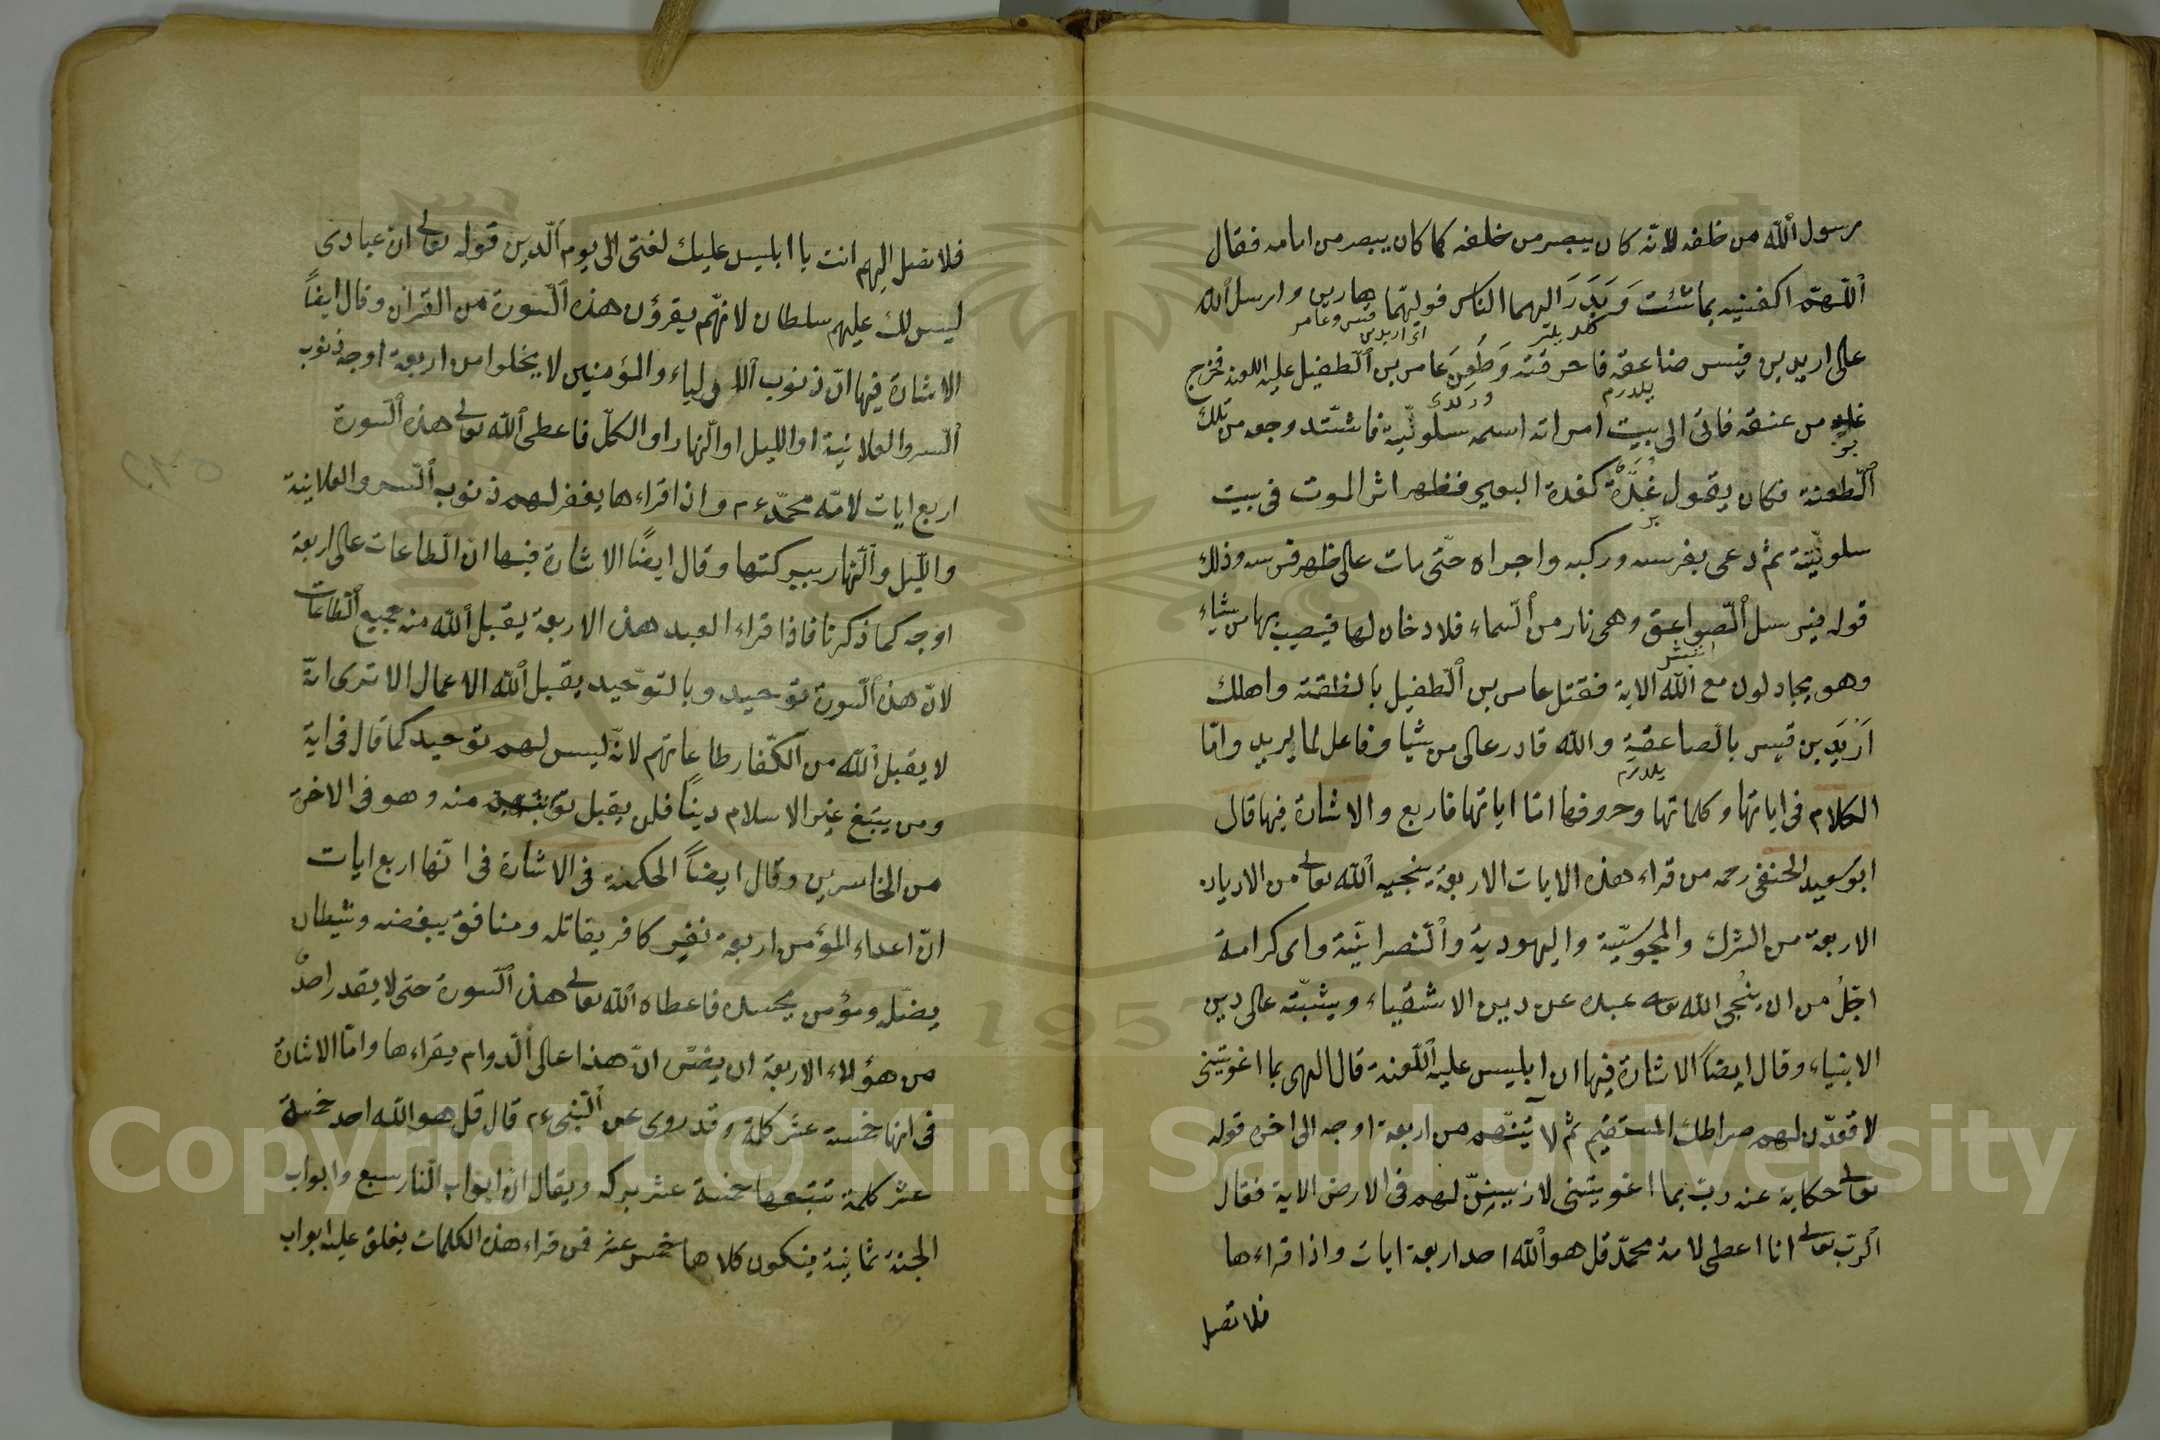 رسول الله من خلفه لانه كان يبصر من خلفه كما كان يبصر من امامه فقال
اللهم اكفنيه بما شئت وبدر اليهما الناس فوليهما هاربين وارسل الله
على اربد بن قيس صاعقة فاحرقته وطعن عامر بن الطفيل عليه اللعنة فخرج
من عنقه فاتى الى بيت امراته اسمه سلولية فاشتد وجعه من تلك
الطعنة فكان يقول غدة كغدة البعير فظهر اثر الموت فى بيت
سلولية ثم دعى بفرسه وركبه واجراه حتى مات على ظهر فرسه وذلك
قوله فيرسل الصواعق وهى نار من السماء فلا دخان لها فيصيب بها من يشاء
وهو يجادلون مع الله الاية فقتل عامر بن الطفيل بالطعنة واهلك
اربد بن قيس بالصاعقة والله قادر على من يشا وفاعل لما يريد واما
يلدرم
الكلام فى اياتها وكلماتها وحروفها اما اياتها فاربع والاشارة فيها قال
ابو سعيد الحنفى رحمه من قراء هذه الايات الاربعة ينجيه الله تعالى من الاديان
الاربعة من الشرك والمجوسية واليهودية والنصرانية واى كرامة
اجل من ان ينجى الله تعه عبده عن دين الاشقياء ويثبته على دين
الانبياء وقال ايضاً الاشارة فيها ان ابليس عليه اللعنة قال الهى بما اغويتنى
لاقعدن لهم صراطك المستقيم ثم لاتينهم من اربعة اوجه الى اخره قوله
تعالى حكاية عنه رب بما اغويتنى لازينن لهم فى الارض الاية فقال
الرب تعالى انا اعطى لامة محمد قل هو الله احد اربعة ايات واذا قراءها
فلا تصل
فلا تصل اليهم انت يا ابليس عليك لعنتى الى يوم الدين قوله تعالى ان عبادى
ليس لك عليهم سلطان لانهم يقرؤن هذه السورة من القرآن وقال ايضاً
الاشارة فيها ان ذنوب الاولياء والمؤمنين لا يخلوا من اربعة اوجه ذنوب
السر والعلانية او الليل او النهار او الكل فاعطى الله تعالى هذه السورة
اربع ايات لامة محمد عم واذا قراءها يغفر لهم ذنوب السر والعلانية
والليل والنهار ببركتها وقال ايضاً الاشارة فيها ان الطاعات على اربعة
اوجه كما ذكرنا فاذا قراء العبد هذه الاربعة يقبل الله منه جميع الطاعات
لان هذه السورة توحيد وبالتوحيد يقبل الله الاعمال الا ترى انه
لا يقبل الله من الكفار طاعاتهم لانه ليس لهم توحيد كما قال فى اية
ومن يبتغ غير الاسلام ديناً فلن يقبل منه وهو فى الاخرة
من الخاسرين وقال ايضاً الحكمة فى الاشارة فى انها اربع ايات
ان اعداء المؤمن اربعة نفير كافر يقاتله ومنافق يبغضه وشيطان
يضله ومؤمن يحسده فاعطاه الله تعالى هذه السورة حتى لا يقدر احد
من هؤلاء الاربعة ان يضر ان هذا على الدوام يقراءها واما الاشارة
فى انها خمسة عشر كلمة وقد روى عن النبى عم قال قل هو الله احد خمسة
عشر كلمة تتبعها خمسة عشر بركه ويقال ان ابواب النار سبع وابواب
الجنة ثمانية فيكون كلاها خمس عشر فمن قراء هذه الكلمات يغلق عليه ابواب
Copyright © King Saud University
1957